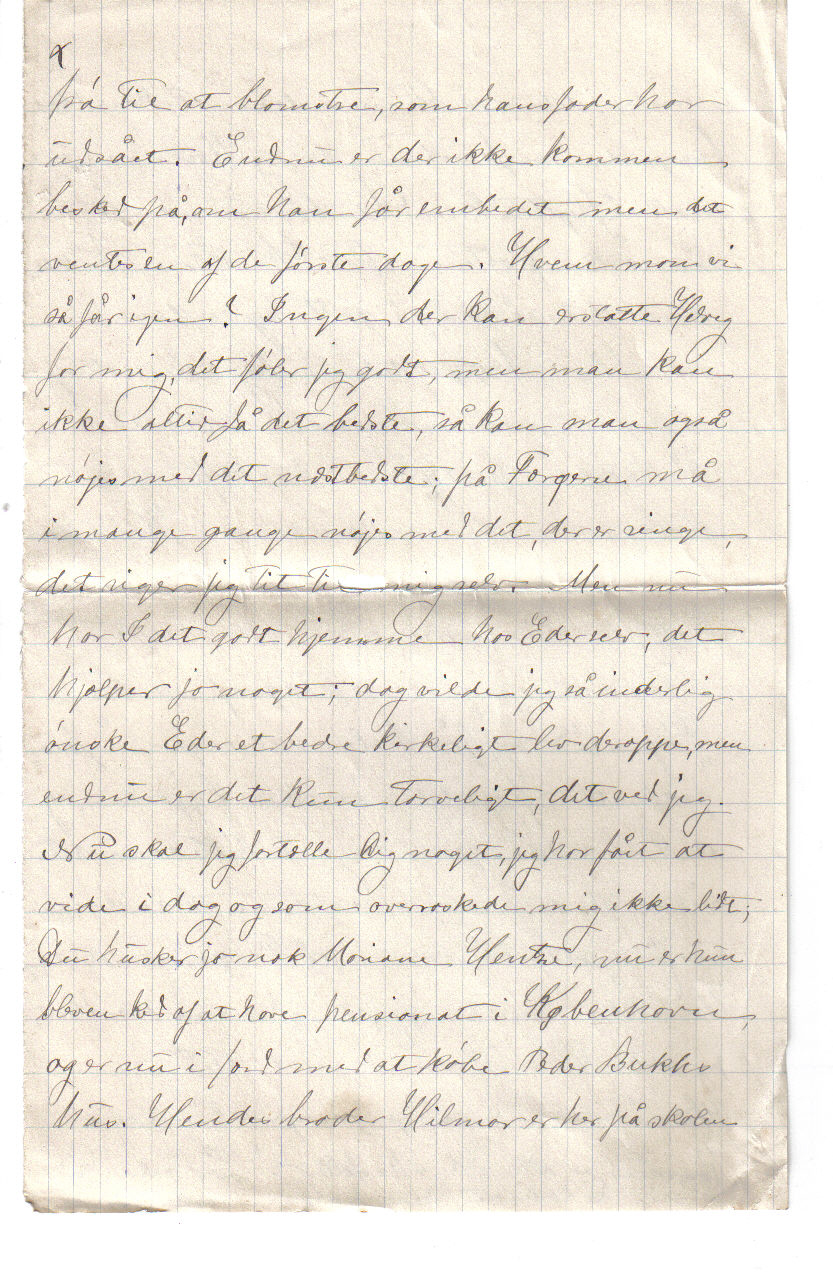 frø til at blomstre, som hans fader har
udsået. Endnu er der ikke kommen
besked på, om han får embedet men det
ventes en af de første dage. Hvem mon vi
så får igen? Ingen der kan erstatte Hedvig
for mig, det føler jeg godt, men man kan
ikke altid få det bedste, så kan man også
nøjes med det næstbedste; på Færøerne må
i mange gange nøjes med det, der er ringe,
det siger jeg tit til mig selv. Men nu
har I det godt hjemme hos Eder selv, det
hjælper jo noget; dog vilde jeg så inderlig
ønske Eder et bedre kirkeligt liv deroppe, men
endnu er det kun tarveligt, det ved jeg.
Nu skal jeg fortælle Dig noget, jeg har fået at
vide i dag og som overraskede mig ikke lidt;
Du husker jo nok Mariane Hentze, nu er hun
bleven ked af at have pensionat i København,
og er nu i færd med at købe Peder Bukhs
hus. Hendes broder Hilmar er her på skolen